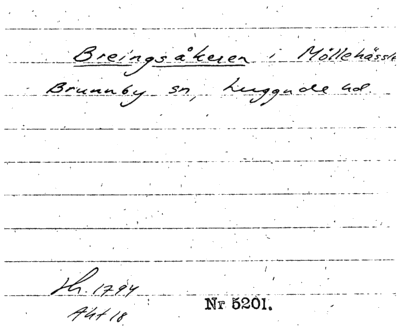 Breingsåkeren i Möllehässle
Brunnby sn, Luggude hd.
Hr. 1794
Akt 18
Nr 5201.